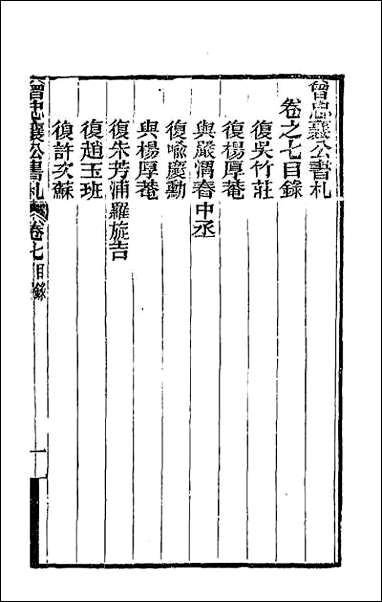 曾忠襄公書札
卷之七目錄
復吳竹莊
復楊厚菴
與嚴渭春中丞
復喻慶勳
與楊厚菴
復朱芳浦羅旋吉
復趙玉班
復許次蘇
曾忠襄公書札 卷七目錄 一